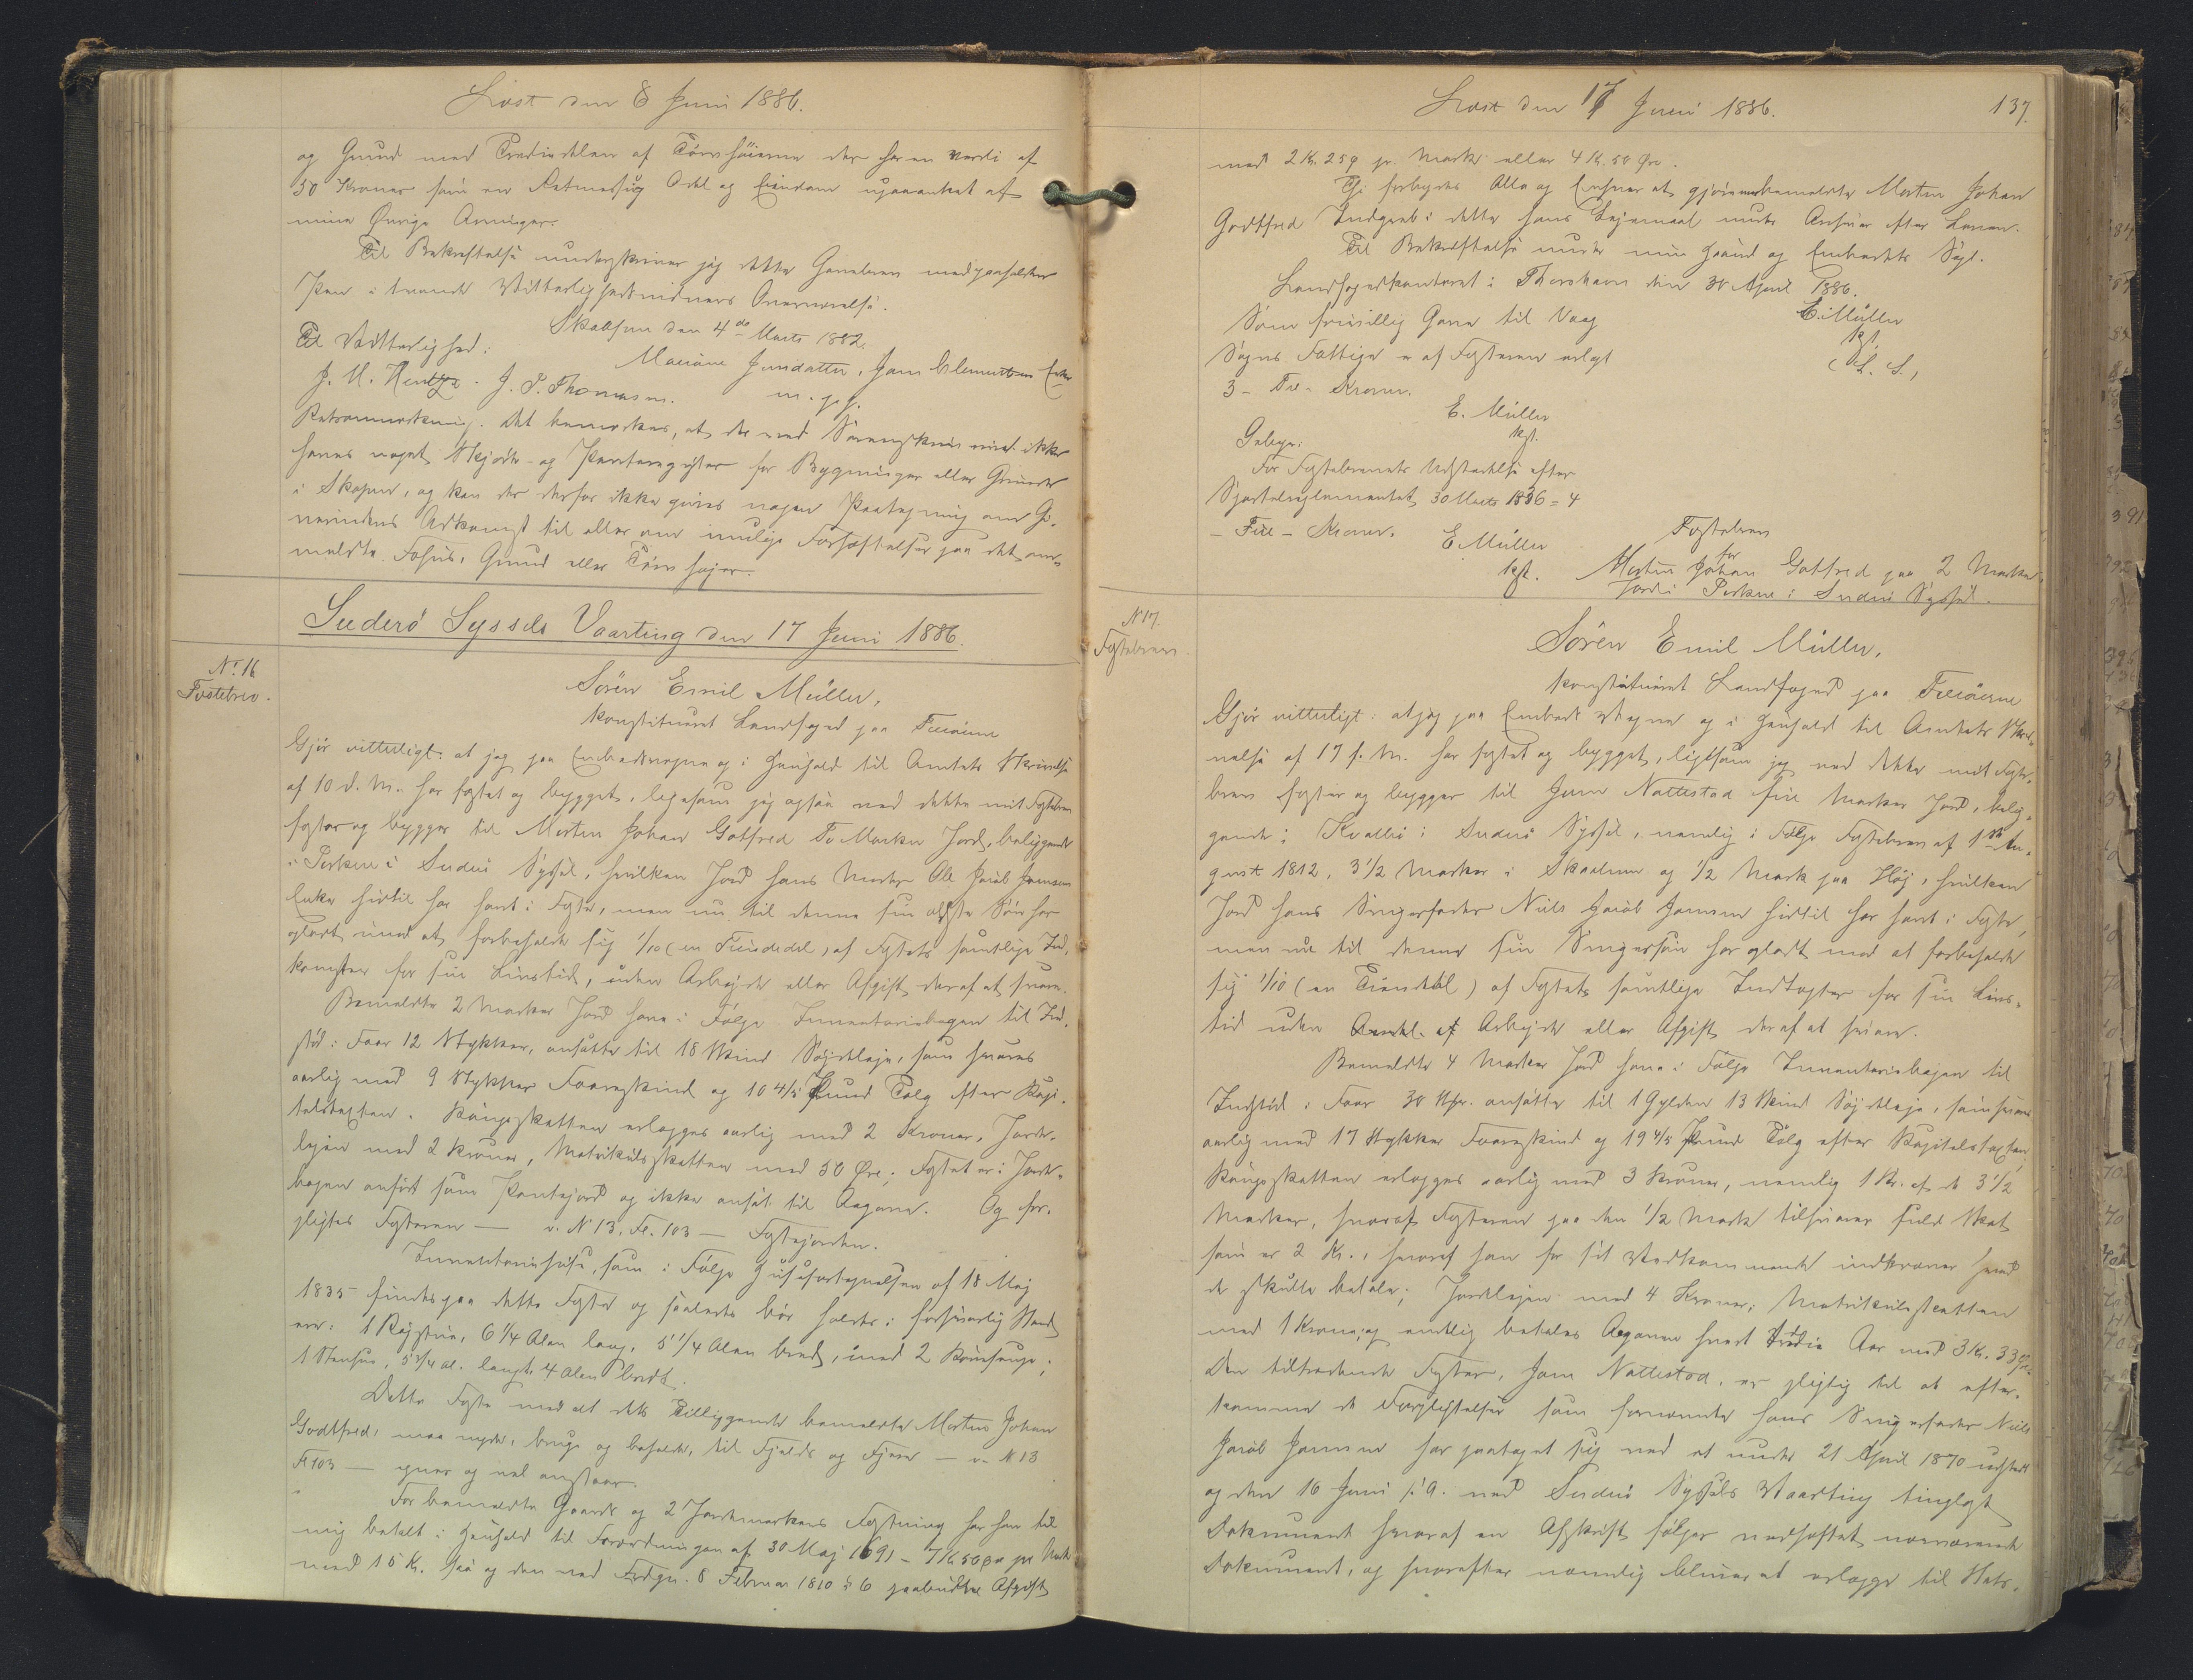 Læst den 8 Juni 1886.
og Grund med Trediedelen af Tørvhøierne der har en værdi af
50 Kroner som en Retmæssig Odel og Eiendom upaaanket af
mine Øvrige Arvinger.
Til Bekræftelse underskriver jeg dette Gavebrev med paaholden
Pen i tvende Vitterlighedsvidners Overværelse.
Skaapen den 4de Marts 1882.
Til Vitterlighed:
Mariane Jensdatter, Jens Clementsen Enke
J. M. Hentze. J. P. Thomasen.
m. p. P.
Retsanmærkning. Det bemærkes, at der ved Sorenskriveriet ikke
haves noget Skjøde- og Panteregister for Bygninger eller Grunde
i Skopen, og kan der derfor ikke gives nogen Paategning om Gi-
verindens Adkomst til eller om mulige Forhæftelser paa det om-
meldte Fæhus, Grund eller Tørvhøjer.
Suderø Syssels Vaarting den 17 Juni 1886.
Nr. 16
Fæstebrev.
Sören Emil Müller,
konstitueret Landfoged paa Færøerne
Gjør vitterligt: at jeg paa Embedsvegne og i Henhold til Amtets Skrivelse
af 10 d. M. har fæstet og bygget, ligesom jeg ogsaa ved dette mit Fæstebrev
fæster og bygger til Morten Johan Gotfred To Marker Jord, beliggende
i Porkere i Suderø Syssel, hvilken Jord hans Moder Ole Jacob Joensens
Enke hidtil har havt i Fæste, men nu til denne sin ældste Søn har
opladt imod at forbeholde sig 1/10 (en Tiendedel) af Fæstets samtlige Ind-
komster for sin Livstid, uden Arbejde eller Afgift deraf at svare.
Bemeldte 2 Marker Jord have i Følge Inventariebogen til Ind-
stød: Faar 12 Stykker, ansatte til 18 Skind Søjdeleje, som svares
aarlig med 9 Stykker Faareskind og 10 4/5 Pund Talg efter Kapi-
telstaxten. Kongsskatten erlægges aarlig med 2 Kroner, Jorde-
lejen med 2 Kroner, Matrikulsskatten med 50 Øre; Fæstet er i Jorde-
bogen anført som Pantejord og ikke ansat til Aagave. Og for-
pligtes Fæsteren — v. N 13, Fl. 103 — Fæstejorden.
Inventariehuse, som i Følge Husefortegnelsen af 18 Maj
1835 findes paa dette Fæste og saaledes bør holdes i forsvarlig Stand
ere: 1 Røgstue, 6 1/4 Alen lang, 5 1/4 Alen bred, med 2
1 Stenhus, 5 3/4 Al. langt 4 Alen bredt.
Dette Fæste med alt dets Tilliggende bemeldte Morten Johan
Godtfred, maa nyde, bruge og beholde, til Fjelds og Fjære — v. N 13
Fl 103 — gives og vel anstaar.
For bemeldte Gaards og 2 Jordmarkers Fæstning har han til
mig betalt i Henhold til Forordningen af 30 Maj 1691 - 7 Kr 50 Øre pr Mark
med 15 Kr. saa og den ved Frdgn. 8 Februar 1810 § 6 paabudte Afgift
Læst den 17 Juni 1886.
137.
med 2 Kr. 25 Ø pr. Mark eller 4 Kr. 50 Øre.
Thi forbydes Alle og Enhver at gjøre ovenbemeldte Morten Johan
Godtfred Indgreb i dette hans Lejemaal under Ansvar efter Loven.
Til Bekræftelse under min Haand og Embeds Segl.
Landfogedkontoret i Thorshavn den 30 April 1886.
E. Müller
kst.
(L. S.)
Som frivillig Gave til Vaag
Sogns Fattige er af Fæsteren erlagt
3 - Tre - Kroner.
E. Müller
kst.
Gebyr:
For Fæstebrevets Udstedelse efter
Sportelreglementet 30 Marts 1836 = 4
- Fire - Kroner.
E. Müller
kst.
Fæstebrev
for
Morten Johan Gotfred paa 2 Marker
Jord i Porkere i Suderø Syssel.
N 17.
Fæstebrev.
Sören Emil Müller,
konstitueret Landfoged paa Færøerne
Gjør vitterligt: at jeg paa Embeds Vegne og i Henhold til Amtets Skri-
velse af 17 f. M. har fæstet og bygget, ligesom jeg ved dette mit Fæste-
brev fæster og bygger til Joen Nattestad fire Marker Jord, belig-
gende i Kvalbø i Suderø Syssel, nemlig i Følge Fæstebrev af 1ste Au-
gust 1812, 3 1/2 Marker i Skaalum og 1/2 Mark paa Høj, hvilken
Jord hans Svigerfader Niels Jacob Joensen hidtil har havt i Fæste,
men nu til denne sin Svigersøn har opladt mod at forbeholde
sig 1/10 (en Tiendedel) af Fæstets samtlige Indtægter for sin Livs-
tid uden Andel af Arbejde eller Afgift deraf at svare.
Bemeldte 4 Marker Jord have i Følge Inventariebogen til
Indstød: Faar 30 Stkr. ansatte til 1 Gylden 13 Skind Søjdeleje, som svares
aarlig med 17 Stykker Faareskind og 19 4/5 Pund Talg efter Kapitelstaxten
Kongsskatten erlægges aarlig med 3 Kroner, nemlig 1 Kr. af de 3 1/2
Marker, hvoraf Fæsteren paa den 1/2 Mark tilsvarer fuld Skat
som er 2 Kr., hvoraf han for sit Vedkommende indkræver hvad
de skulle betale; Jordlejen med 4 Kroner; Matrikulsskatten
med 1 Krone; og endelig betales Aagaven hvert tredie Aar med 3 Kr. 33 Øre.
Den tiltrædende Fæster, Joen Nattestad, er pligtig til at efter-
komme de Forpligtelser som fornævnte hans Svigerfader Niels
Jacob Joensen har paataget sig ved et under 21 April 1870 udstedt
og den 16 Juni s. A. ved Suderø Syssels Vaarting tinglæst
Dokument hvoraf en Afskrift følger vedhæftet nærværende
Dokument, og hvorefter nemlig bliver at erlægge til Høts-